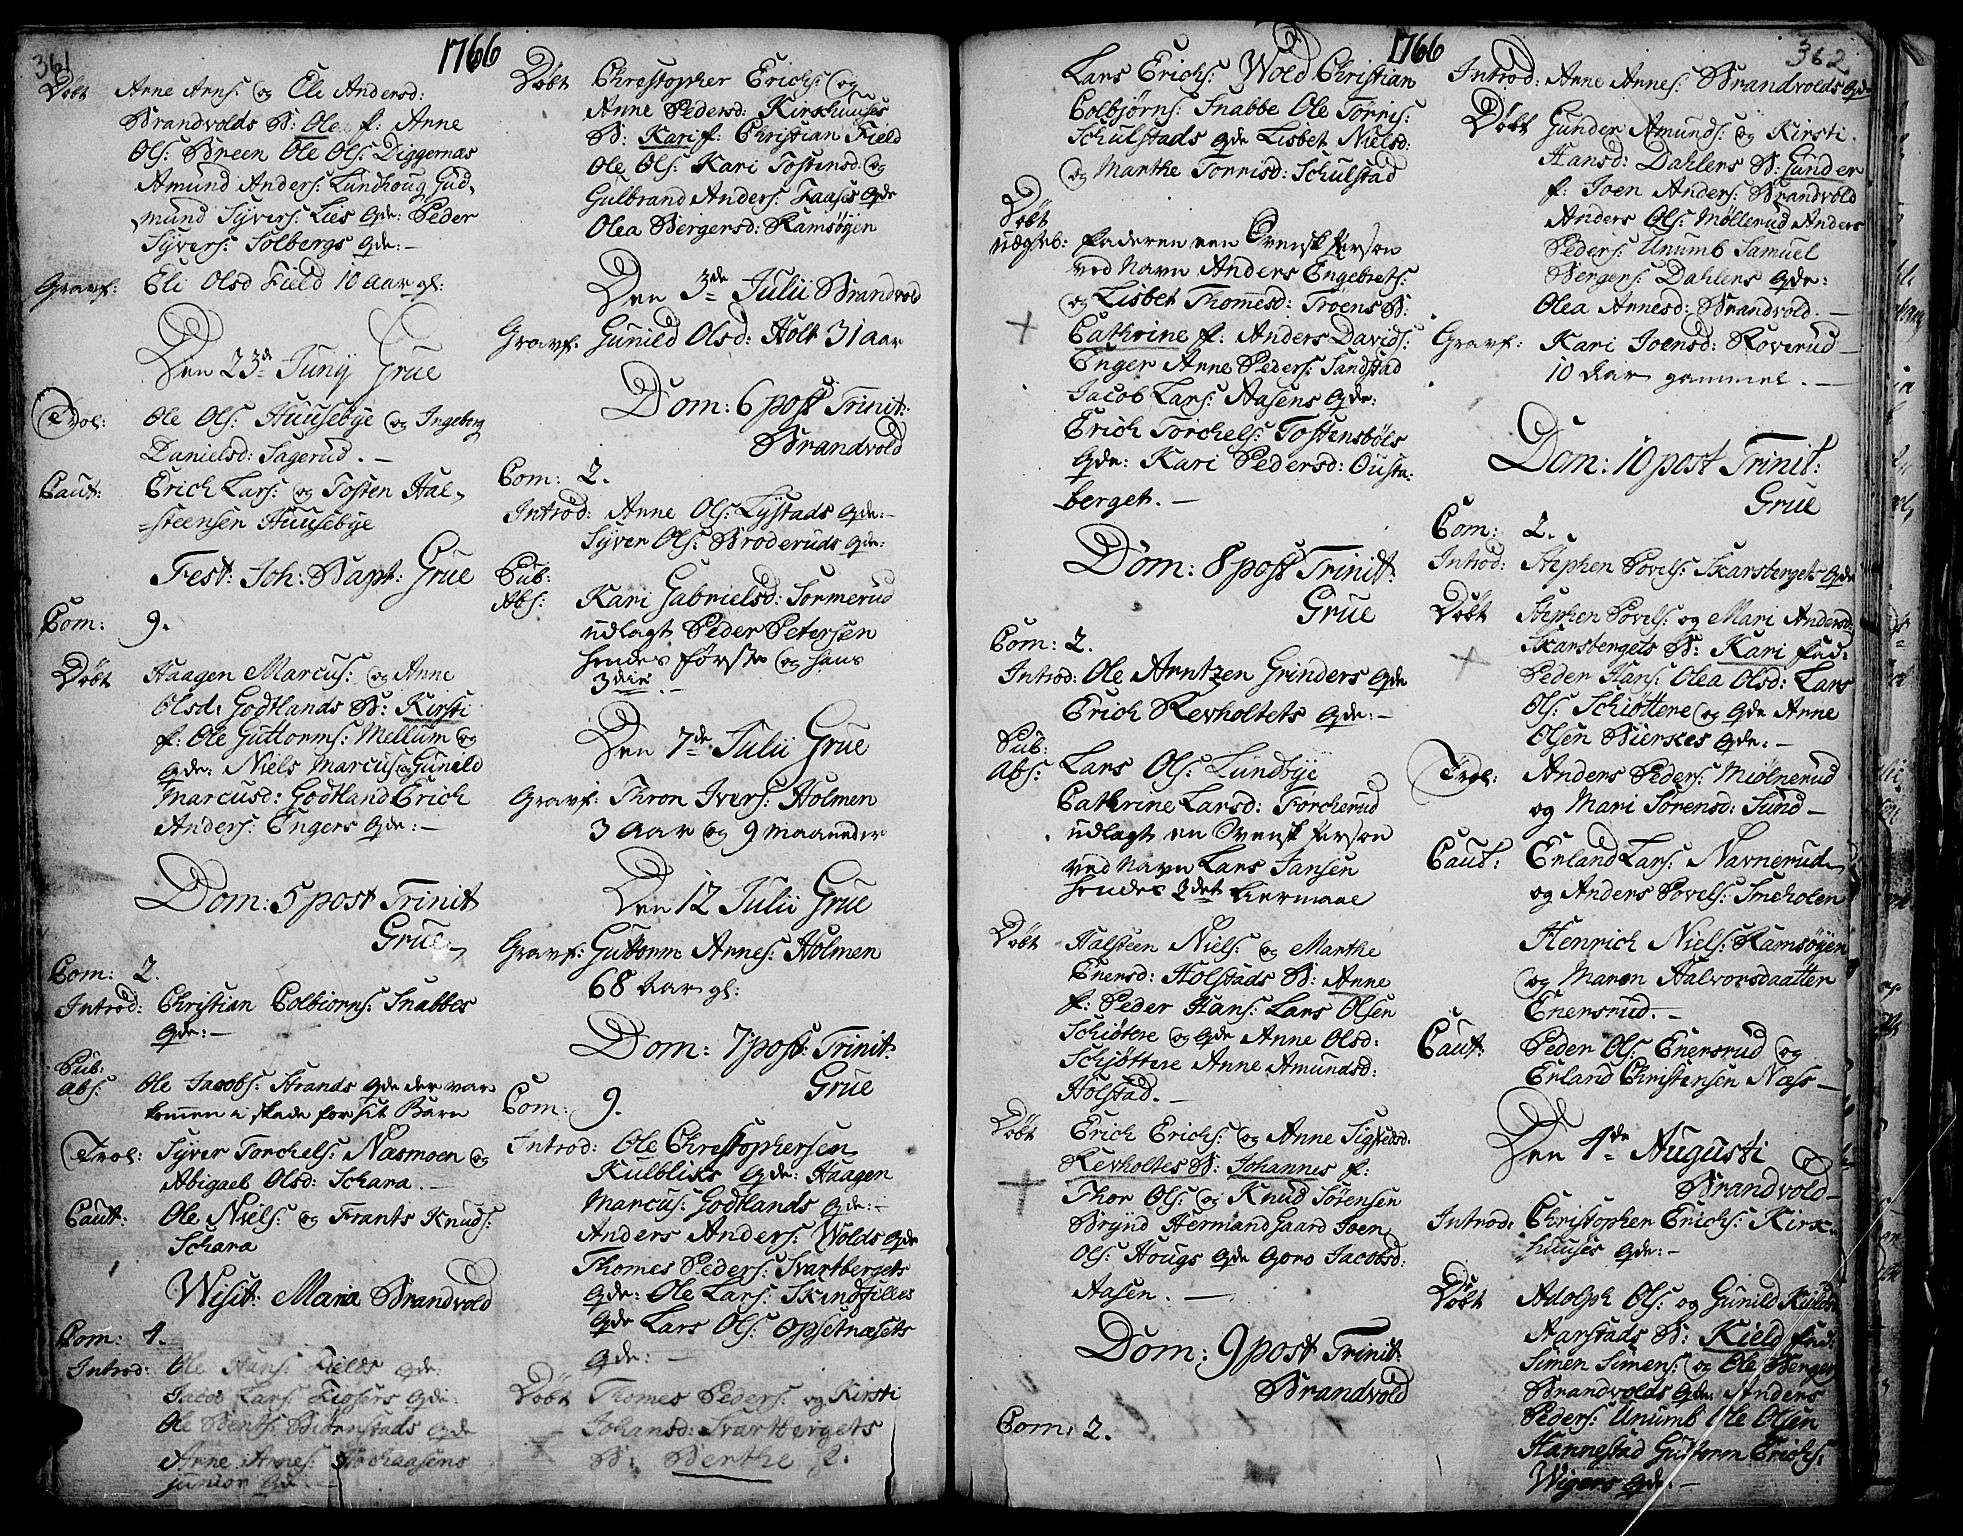 361
1766
Døbt Arne Arns: og Eli Andersd:
Brandvolds B: Olea f: Anne
Ols: Breen Ole Ols: Diggernas
Amund Anders: Lundhoug Gud,
mund Syvers: Lies qde: Peder
Syvers: Solbergs qde: –
Gravf: Eli Olsd Field 10 aar gl:
Den 23de Juny Grue
Trol: Ole Ols: Huusebye og Ingeborg
Danielsd: Sagerud. –
Caut: Erich Lars: og Tosten Hal,
steensen Huusebye
Fest: Joh: Bapt: Grue
Com: 9.
Døbt Haagen Marcus: og Anne
Olsd: Godtlands B: Kirsti
f: Ole Guttorms: Mellum og
qde: Niels Marcus: og Gunild
Marcusd: Godtland Erich
Anders: Engers qde: –
Dom: 5 post Trinit
Grue
Com: 2.
Introd: Christian Colbiorns: Snabbes
qde: –
Pub:
abs: Ole Jacobs: Strands qde der var
kommen i skade for sit Barn
Trol: Syver Torchels: Næsmoen og
Abigael Olsd: Schara. –
Caut: Ole Niels: og Frants Knuds:
Schara
Wisit: Maria Brandvold
Com: 4.
Introd: Ole Hans: Fields qde:
Jacob Lars: qde:
Ole Bents: qde
Arne Arnes:
junior qde –
Døbt Christopher Erichs: og
Anne Pedersd: Kirkhuuses
B: Kari f: Christian Field
Ole Ols: Kari Tostensd: og
Gulbrand Anders: Faass qde
Olea Bergersd: Ramsøyen
Den 3de Julii Brandvold
Gravf: Gunild Olsd: Holt 31 aar
Dom: 6 post Trinit:
Brandvold
Com: 2.
Introd: Anne Ols: Lystads qde: –
Syver Ols: Broderuds qde:
Pub:
Abs: Kari Gabrielsd: Sormerud
udlagt Peder Petersen
hendes første og hans
3die. –
Den 7de Julii Grue
Gravf: Thron Ivers: Holmen
3 Aar og 9 maaneder
Den 12 Julii Grue
Gravf: Guttorm Arnes: Holmen
68 Aar gl:
Dom: 7 post: Trinit:
Grue
Com: 9.
Introd: Ole Christophersen
Kulbliks qde: Haagen
Marcus: Godtlands qde: –
Anders Anders: Wolds qde
Thomes Peders: Svartbergets
qde: Ole Lars: Skindfilles
qde Lars Ols: Opsetnæsets
qde: –
Døbt Thomes Peders: og Kirsti
Johansd: Svartbergets
B: Berthe f:
1766
Lars Erichs: Wold Christian
Colbjørns: Snabbe Ole Torris:
Schulstads qde Lisbet Nielsd:
og Marthe Torrisd: Schulstad
Døbt
uægteb: faderen een Svensk Person
ved Navn Anders Engebrets:
og Lisbet Thomesd: Troens B:
Cathrine f: Anders Davids:
Enger Anne Peders: Sandstad
Jacob Lars: Aasens qde:
Erich Torchels: Tostensbøls
qde: Kari Pedersd: Ousta,
berget. –
Dom: 8 post Trinit:
Grue
Com: 2.
Introd: Ole Arntzen Grinders qde
Erich Revholtets qde: –
Pub:
abs: Lars Ols: Lundbye
Cathrine Larsd: Torcherud
udlagt en Svensk Person
ved Navn Lars Jansen
hendes 2det Leiermaal
Døbt Halsteen Niels: og Marthe
Enersd: Holstads B: Anne
f: Peder Hans: Lars Olsen
Schiøtere og qde Anne Olsd:
Schjøttere Anne Amundsd:
Holstad. –
Døbt Erich Erichs: og Anne Sigfredsd:
Revholtes B: Johannes f:
Thor Ols: og Knud Sørensen
Brynd Hermand Gaard Joen
Ols: Hougs qde Goro Jacobsd:
Aasen. –
Dom: 9 post Trinit:
Brandvold
Com: 2.
362
Introd: Arne Arnes: Brandvolds qde
Døbt Gunder Amunds: og Kirsti
Hansd: Dahlens B: Gunder
f: Joen Anders: Brandvold
Anders Ols: Møllerud Anders
Peders: Unumb Samuel
Bergers: Dahlens qde:
Olea Arnesd: Brandvold. –
Gravf: Kari Joensd: Roverud –
10 Aar gammel. –
Dom: 10 post Trinit:
Grue
Com: 2.
Introd: Stephen Povels: Skarsbergets qde
Døbt Stephen Povels: og Mari Andersd:
Skarsbergets B: Kari fad:
Peder Hans: Olea Olsd: Lars
Ols: Schiøttere og qde Anne
Olsen Bierkes qde: –
Trol: Anders Peders: Miølnerud
og Mari Sørensd: Sund –
Caut: Erland Lars: Navnerud
og Anders Povels: Smeholen
Henrich Niels: Ramsøyen
og Maren Halvorsdaatter
Enersrud. –
Caut: Peder Ols: Enersrud og
Erland Christensen Næss –
Den 4de Augusti
Brandvold –
Introd: Christopher Erichs: Kirk,
huuses qde: –
Døbt Adolph Ols: og Gunild Kields:
Aarstads B: Kield fad:
Simen Simens: og Ole Berger
Brandvolds qde: Anders
Peders: Unumb Ole Olsen
Hannestad Guttorm Erichs:
Wigers qde: –